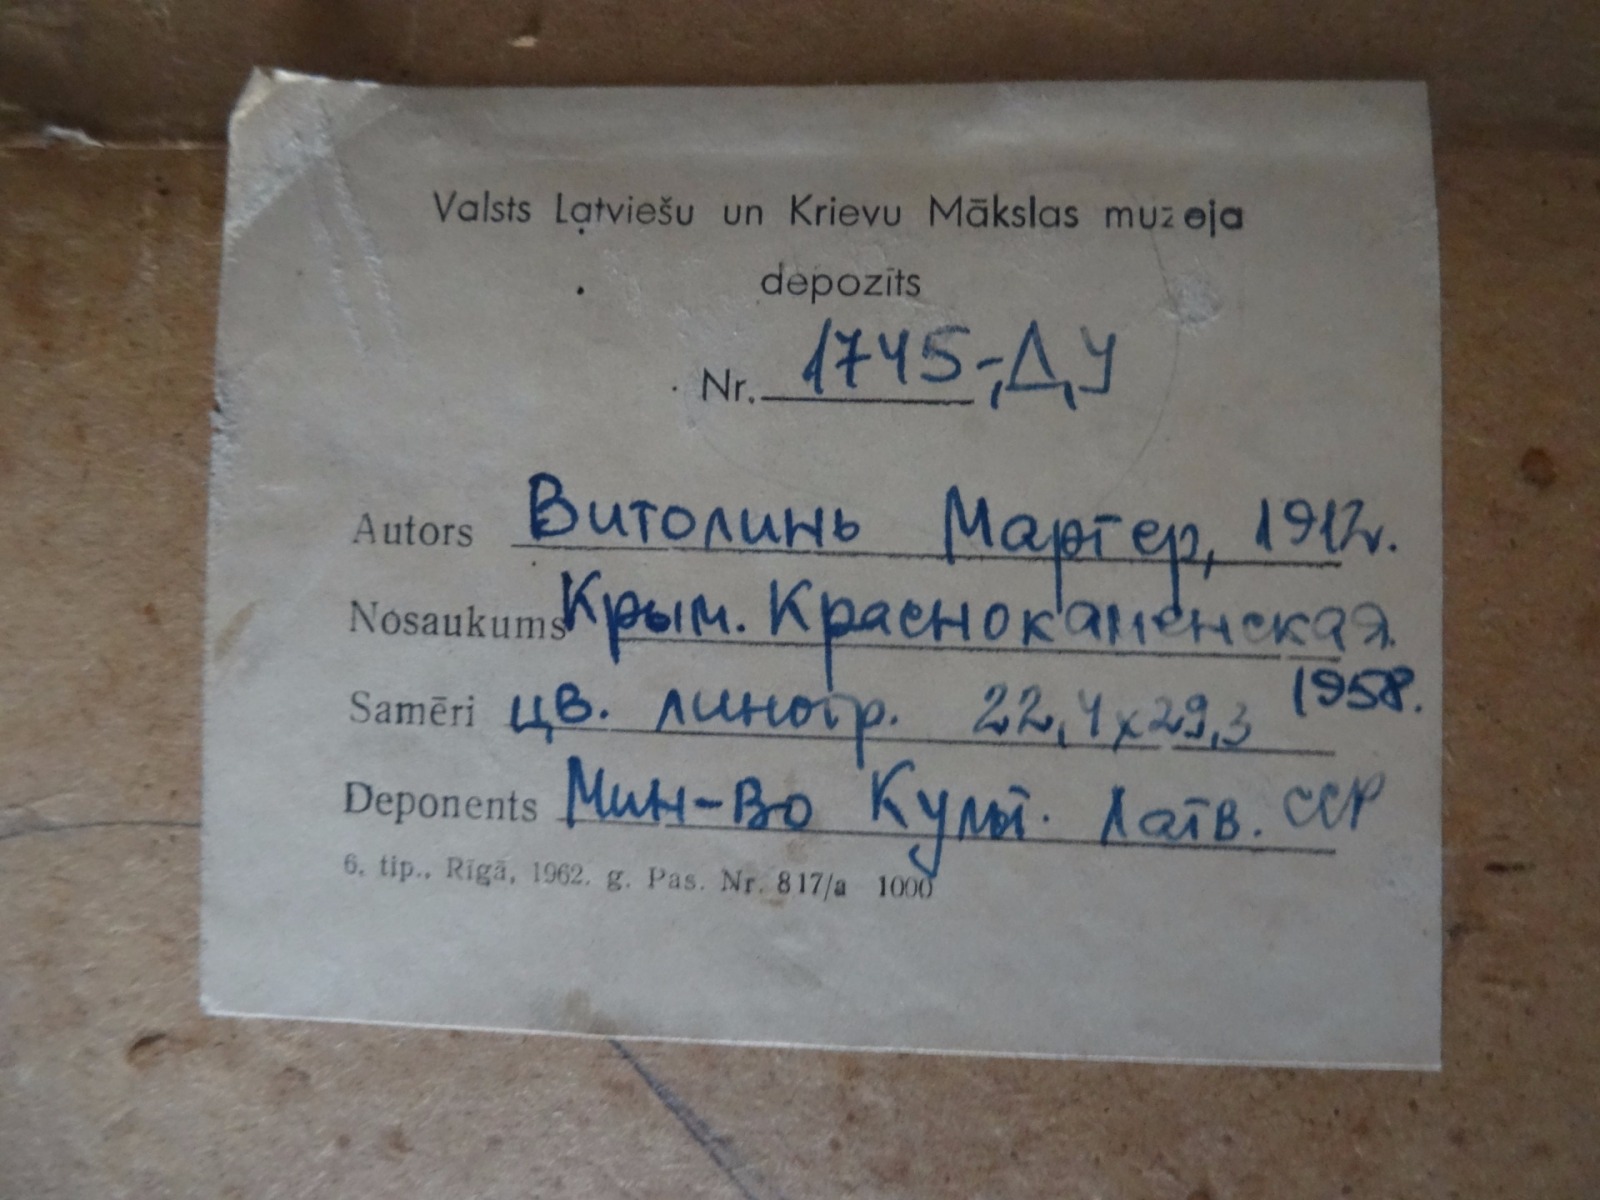 Valsts Latviešu un Krievu Mākslas muzeja
depozīts
Nr. 1745-ДУ
Autors Витолинь Мартер, 1912г.
Nosaukums Крым. Краснокаменская.
1958.
Samēri цв. линогр. 22,4x29,3
Deponents Мин-во Культ. Латв. ССР
6. tip., Rīgā, 1962. g. Pas. Nr. 817/a 1000